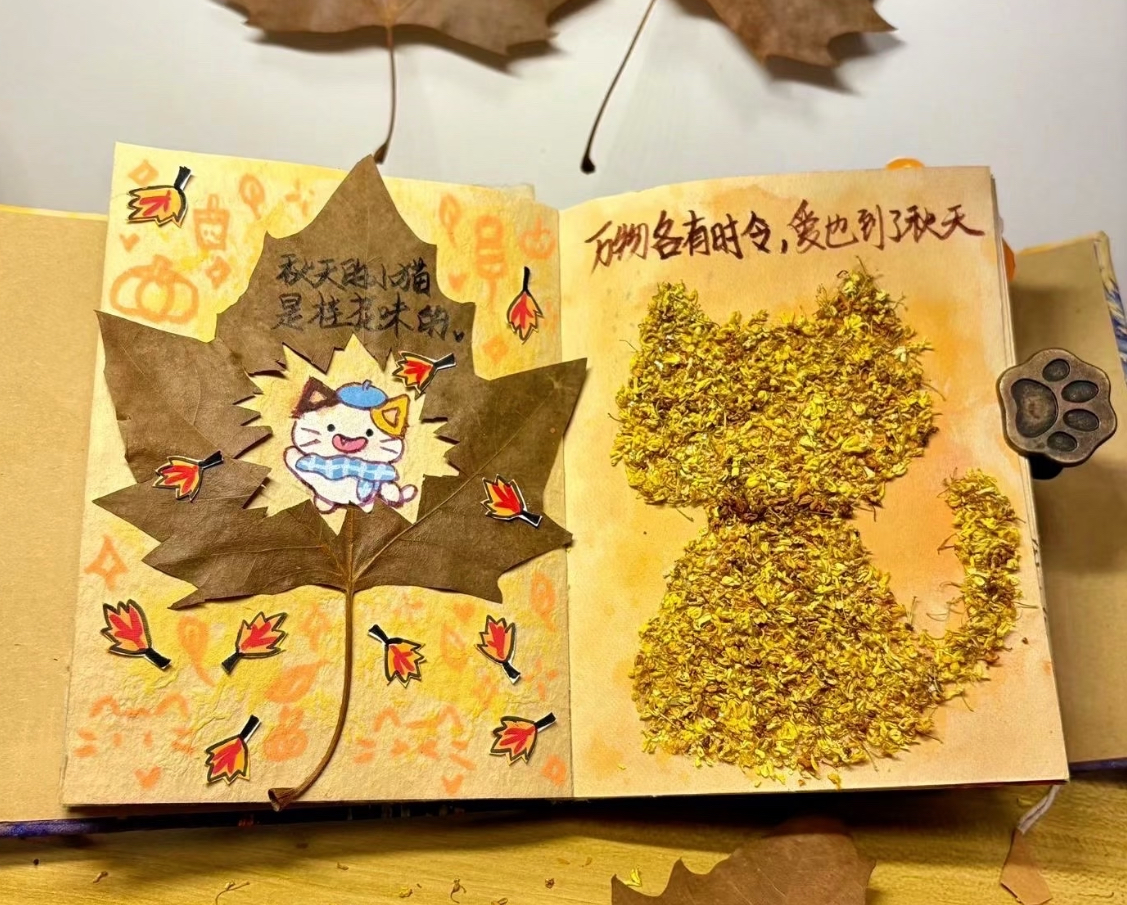 秋天的小猫
是桂花味的。
万物各有时令,爱也到了秋天